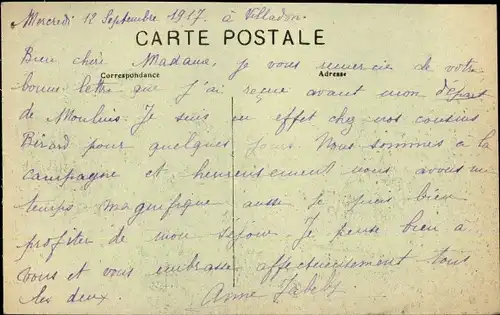 Mercredi 12 Septembre 1917. à Villadon.
CARTE POSTALE
Bien chère Madame, je vous remercie de votre
Correspondance
Adresse
bonne lettre que j'ai reçue avant mon départ
de Moulins. Je suis en effet chez nos cousins
Bérard pour quelques jours. Nous sommes à la
campagne et heureusement nous avons un
temps magnifique aussi je puis bien
profiter de mon séjour. Je pense bien à
vous et vous embrasse affectueusement tous
les deux.
Anne